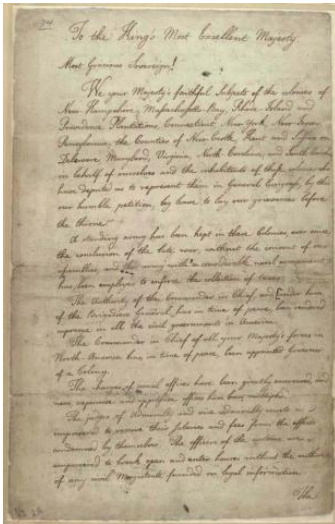 To the King's Most Excellent Majesty.
Most Gracious Sovereign!
We your Majesty's faithful Subjects of the colonies of
New Hampshire, Massachusetts Bay, Rhode Island and
Providence Plantations, Connecticut, New York, New Jersey,
Pennsylvania, the Counties of New Castle, Kent and Sussex on
Delaware, Maryland, Virginia, North Carolina, and South Carolina
in behalf of ourselves and the inhabitants of these colonies who
have deputed us to represent them in General Congress, by this
our humble petition, beg leave to lay our grievances before
the throne.
A standing army has been kept in these Colonies, ever since
the conclusion of the late war, without the consent of our
assemblies; and this army with a considerable naval armament
has been employed to enforce the collection of taxes.
The Authority of the Commander in Chief, and under him
of the Brigadiers General has in time of peace, been rendered
supreme in all the civil governments in America.
The Commander in Chief of all your Majesty's forces in
North America has in time of peace, been appointed Governor
of a Colony.
The charges of usual offices have been greatly increased, and
new, expensive and oppressive offices have been multiplied.
The judges of Admiralty and vice admiralty courts are
impowered to receive their salaries and fees from the effects
condemned by themselves. The officers of the customs are
impowered to break open and enter houses without the authority
of any civil Magistrate founded on legal information.
The